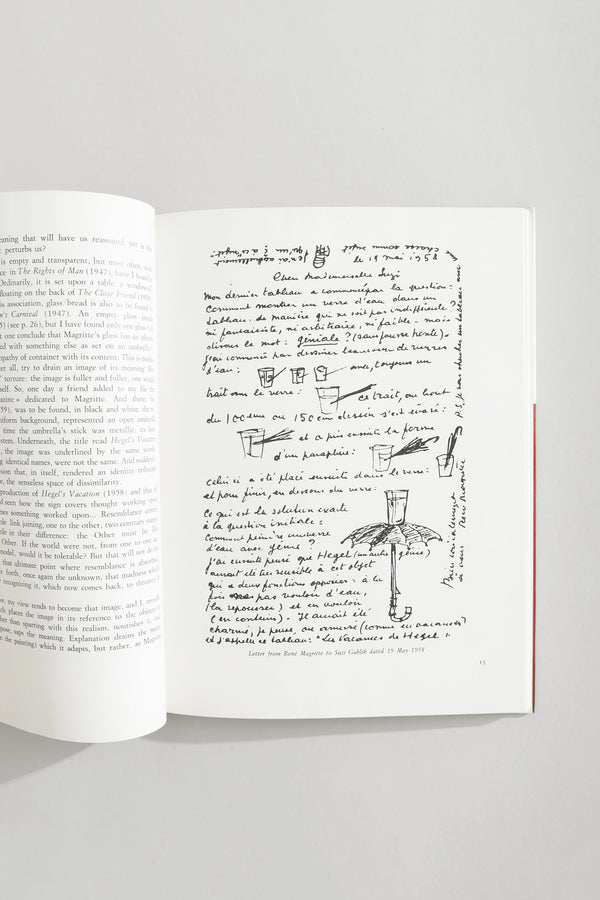 eaning that will have us reassured, yet is the
t perturbs us?
is empty and transparent, but most often, with
ce in The Rights of Man (1947), have I found it
Ordinarily, it is set upon a table, a window
floating on the back of The Close Friend (195
is association, glass bread is also to be found
n't Carnival (1947). An empty glass stand
5) (see p. 26), but I have found only one glass
ot one conclude that Magritte's glass has an
ed with something else as set on an umbrella
mpathy of container with its content. This is
er all, try to drain an image of its meaning? But
' torture: the image is fuller and fuller, one would
self. So, one day a friend added to my file the
azine » dedicated to Magritte. And there, in
59), was to be found, in black and white, the
niform background, represented an open umbrella
time the umbrella's stick was metallic, its
ystem. Underneath, the title read Hegel's Vacation
the image was underlined by the same words
g identical names, were not the same. And suddenly
sion that, in itself, rendered an identity
e, the senseless space of dissimilarity.
production of Hegel's Vacation (1958) and that of
d seen how the sign covers thought working upon
mes something worked upon... Resemblance
ble link joining, one to the other, two contrary
ble in their difference: the Other must be like
Other. If the world were not, from one to one
model, would it be tolerable? But that will not do
that ultimate point where resemblance is absorbed
o forth, once again the unknown, that madness which
recognizing it, which now comes back, to threaten
me, my view tends to become that image, and I, myself
ch places the image in its reference to the objects
ther than sparring with this realism, nourishes it, and
pose, saps the meaning. Explanation drains the
t the painting) which it adapts, but rather, as Magritte
le 19 mai 1958
Chère Mademoiselle Suzi
Mon dernier tableau a commencé par la question:
Comment montrer un verre d'eau dans un
tableau, de manière qui ne soit pas indifférente?
ni fantaisiste, ni arbitraire, ni faible - mais
disons le mot: géniale? (sans fausse honte).
J'ai commencé par dessiner beaucoup de verres
d'eau: avec, toujours un
trait sur le verre: ce trait, au bout
du 100ème ou 150ème dessin s'est évasé:
et a pris ensuite la forme
d'un parapluie:
celui ci a été placé ensuite dans le verre:
et pour finir, en dessous du verre:
Ce qui est la solution exacte
à la question initiale:
Comment peindre un verre
d'eau avec génie?
J'ai ensuite pensé que Hegel (un autre génie)
aurait été très sensible à cet objet
qui a deux fonctions opposées: à la
fois pas vouloir d'eau,
(la repousser) et en vouloir
(en contenir). Il aurait été
charmé, je pense, ou amusé (comme en vacances)
et j'appelle ce tableau: "Les Vacances de Hegel".
Bien cordialement
à vous René Magritte
Letter from René Magritte to Suzi Gablik dated 19 May 1958
15